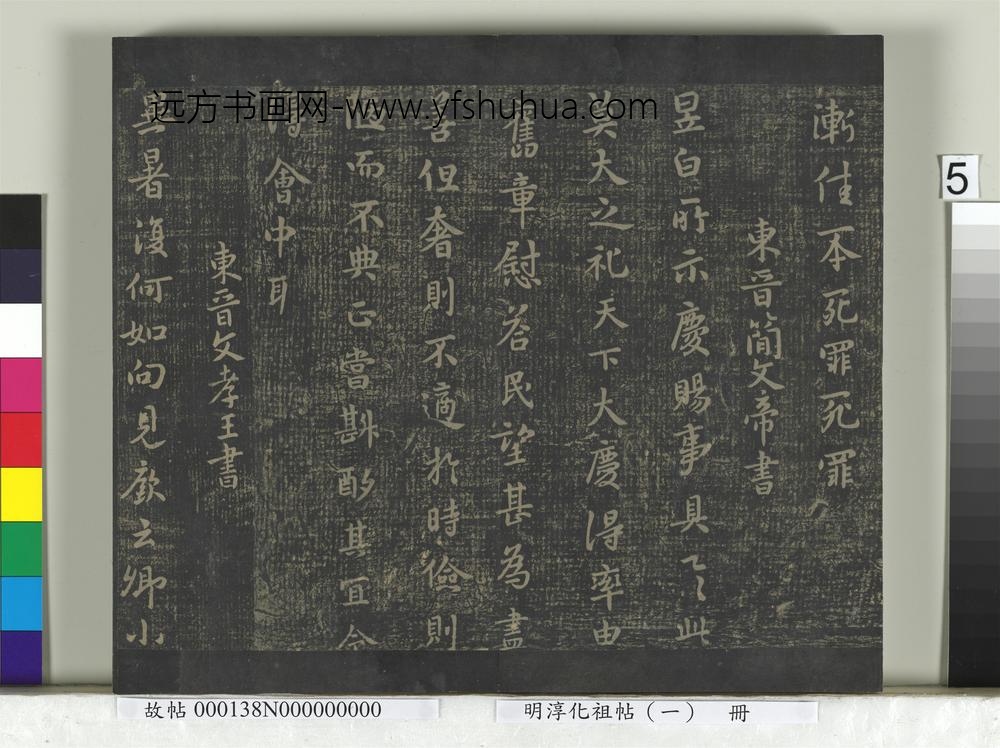 远方书画网-www.yfshuhua.com
5
漸佳不死罪死罪
東晉簡文帝書
昱白所示慶賜事具了此
美大之礼天下大慶得率由
舊章慰荅民望甚為盡
善但奢則不適於時儉則
陋而不典正當斟酌其宜令
得會中耳
東晉文孝王書
異暑復何如向見慶云卿小
故帖 000138N000000000
明淳化祖帖（一） 冊